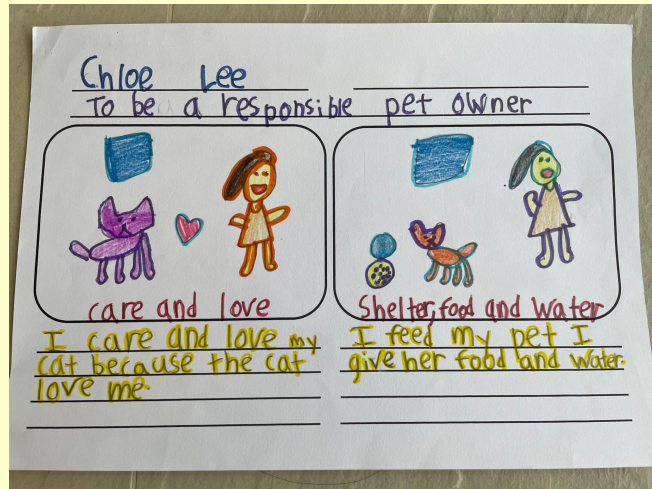 Chloe Lee
To be a responsible pet owner
care and love
I care and love my
cat because the cat
love me.
Shelter, food and water
I feed my pet I
give her food and water.